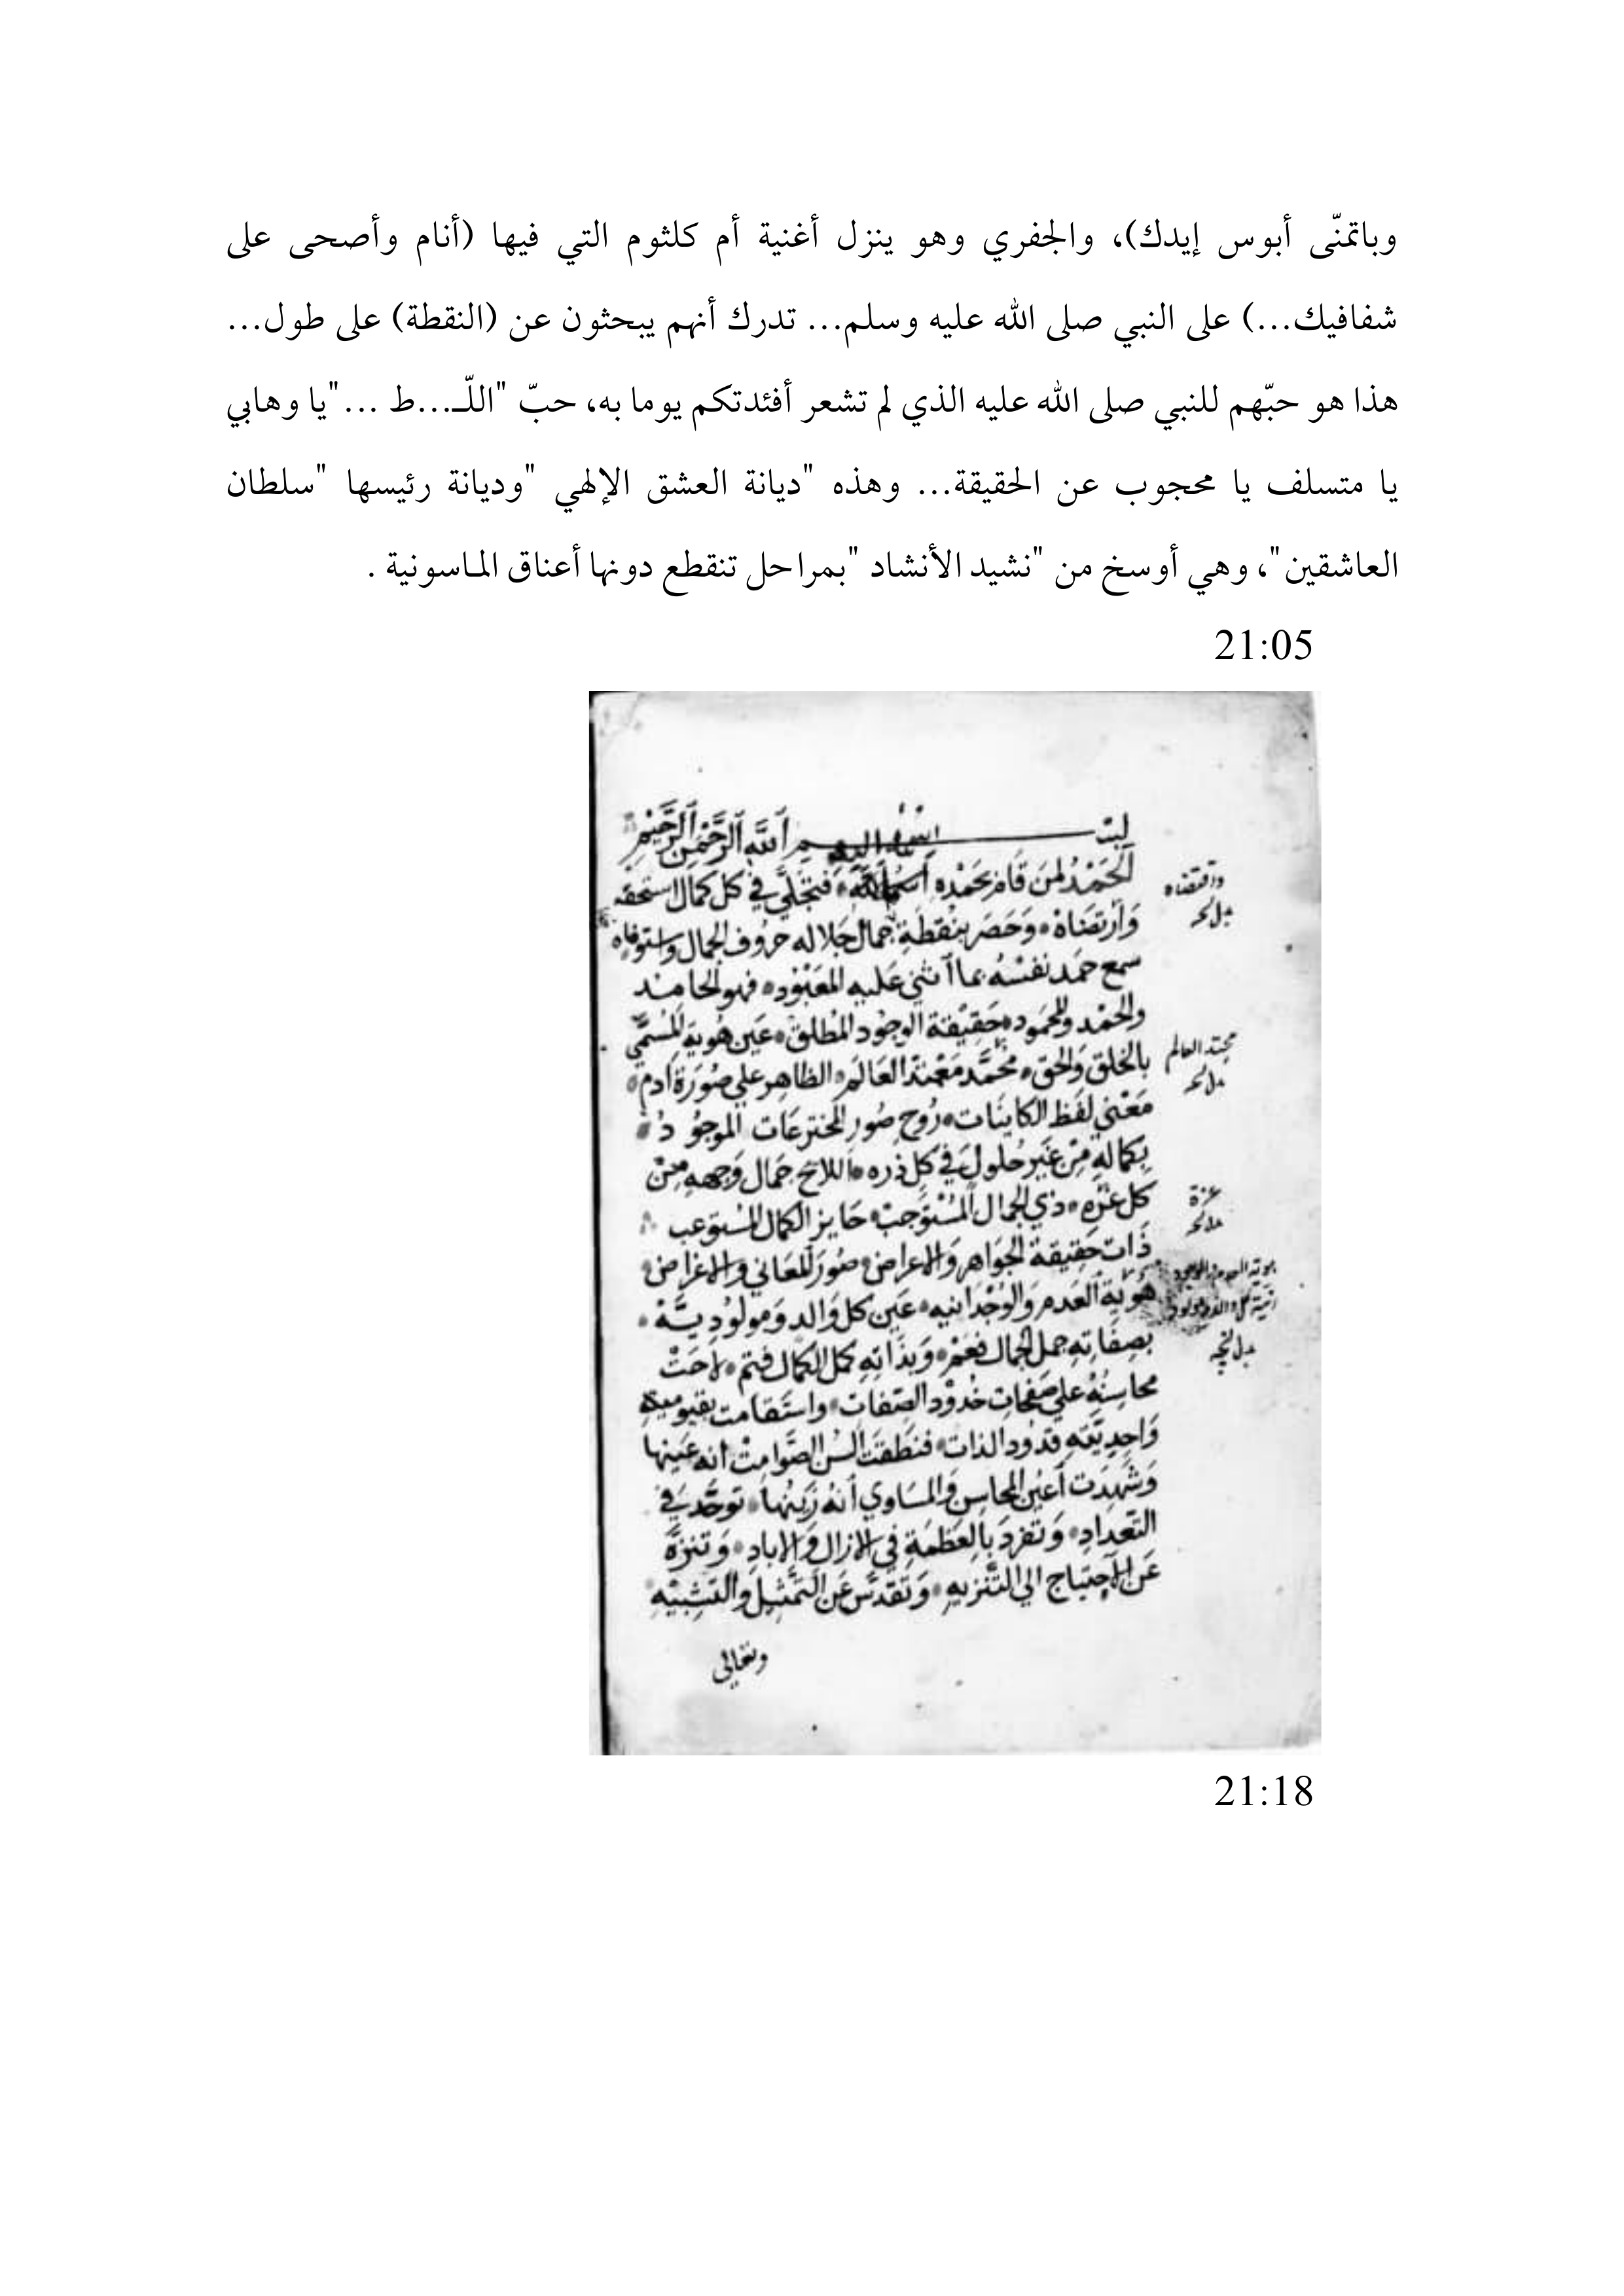 وباتمنّى أبوس إيدك)، والجفري وهو ينزل أغنية أم كلثوم التي فيها (أنام وأصحى على
شفافيك...) على النبي صلى الله عليه وسلم... تدرك أنهم يبحثون عن (النقطة) على طول...
هذا هو حبّهم للنبي صلى الله عليه الذي لم تشعر أفئدتكم يوما به، حبّ "اللّـ...ط ..."يا وهابي
يا متسلف يا محجوب عن الحقيقة... وهذه "ديانة العشق الإلهي "وديانة رئيسها "سلطان
العاشقين"، وهي أوسخ من "نشيد الأنشاد "بمراحل تنقطع دونها أعناق الماسونية .
21:05
بسم اللَّه الرَّحْمٰن الرَّحِيْم
الحَمْدُ لمَن قَام بحَمْدِه فتجَلَّي في كل كمال استحقه
وَارتضَاهْ وَحَصَر بنُقطَةِ جمال جَلاله حرُوف الجمال واستوفاه
سمع حَمد نفسْه بما اثني عَليه المعبُوْد فهو الحامد
والحَمْد والمحمود حَقِيْقة الوجُود المُطلق عَين هُوية المُسَمَّي
بالخلق وَالحق محمَّد العَالم الظاهِر علي صُورَة ادم
مَعْني لفظ الكاينَات رُوح صُور المخترعَات الموجُودُ
بِكماله مِن غَير حُلول في كل ذره اللايح جَمال وَجهه مِن
كل غرّه ذي الجمال المُسْتَوجب حَايز الكمال المُستوعب
ذَات حَقِيقة الجوَاهر وَالاعراض صُورَ المعَاني والاغراض
هُوية العَدم وَالوُجْدانيه عَين كل وَالد وَمولُوديَّه
بصِفَاتِهِ جمل الجمال فعَمْ وَبذَاتِهِ كمل الكمال فتم لاحَتْ
محاسِنُهُ علي صَفحاتِ خدُوْد الصِفات واستَقامت بقيوميَة
وَاحِديتِهِ قدُود الذات فنطَقَت السُن الصَّوامِتْ انه عَينها
وَشَهِدَت اعيُن المحَاسِن وَالمسَاوي انهُ زَينُها توحَّد في
التَعدَادِ وَتفردَ بالعَظمَةِ في الازال وَالابادِ وَتنزهَّ
عَن الاحِتيَاج الي التَّنزيهِ وَتَقدسَّ عَن التَمثِيل والتشْبيْهِ
وتعالي
21:18